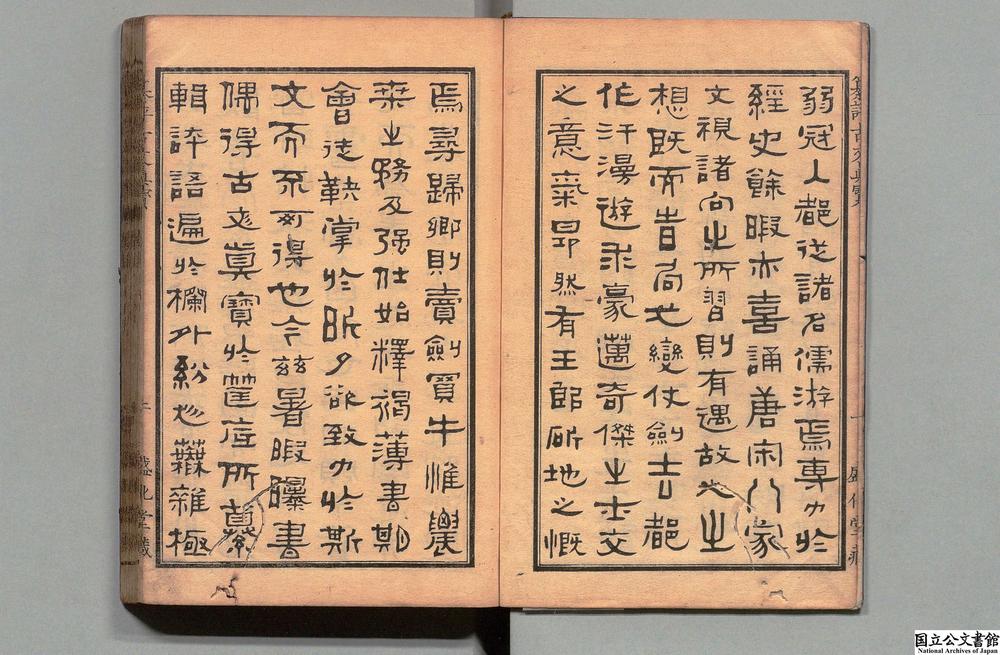 弱冠入都從諸名儒游焉專力於
經史餘暇亦喜誦唐宋八家
文視諸向之所習則有遇故人之
想既而旹局弌變仗劍去都
作汗漫遊求豪邁奇傑之士交
之意氣昂然有王郎斫地之慨
焉尋歸鄉則賣劍買牛惟農
桑之務及强仕始釋褐薄書期
會徒鞅掌於昕夕欲致力於斯
文而不可得也今玆暑暇曝書
偶得古文眞寶於筐底所纂
輯評語遍於欄外紛然蕪雜極
国立公文書館
National Archives of Japan